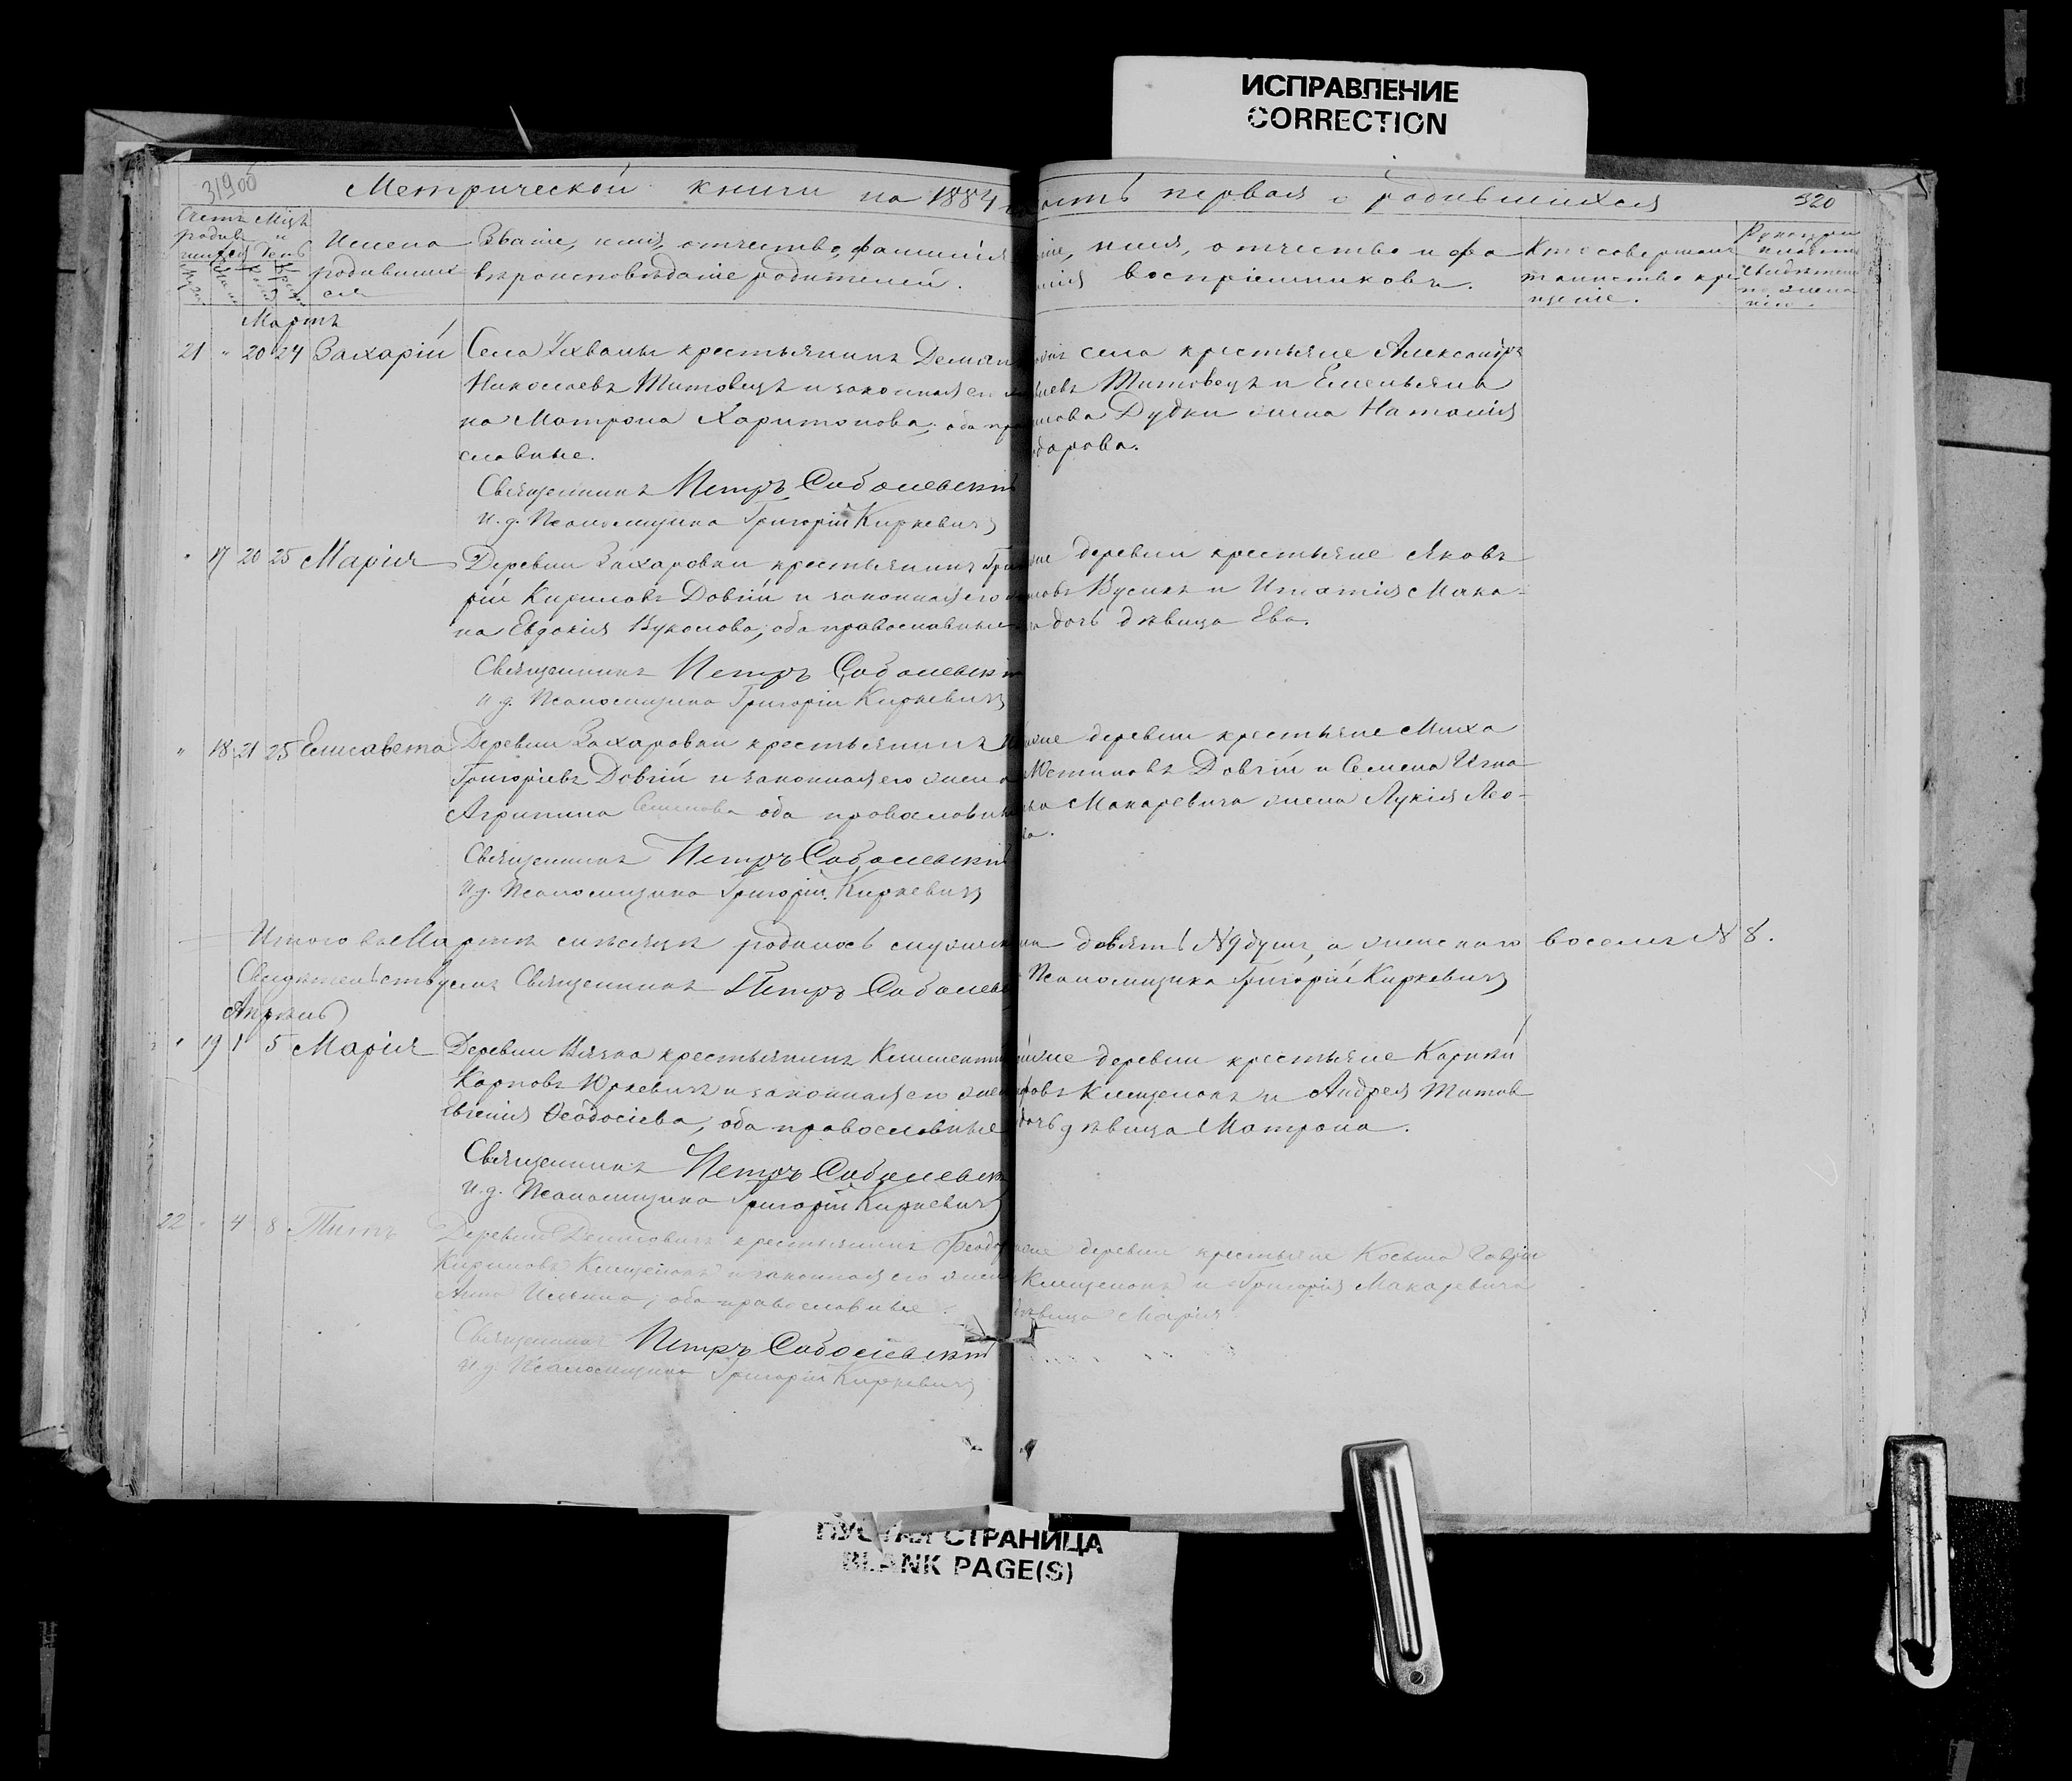 ИСПРАВЛЕНИЕ
CORRECTION
319об
Метрической книги на 1884
асть первая о родившихся
320
Счетъ родив
Мцъ и день
Имена родивших
ся
Званіе, имя, отчество, фамилія
вѣроисповѣданіе родителей.
ніе, имя, отчество и фа
милія воспріемниковъ.
Кто совершалъ
таинство кре
щеніе.
Мартъ
21 " 20 24 Захарій
Села Ухвалы крестьянинъ Деміан
Николаевъ Титовецъ и законная его
на Матрона Харитонова; оба пра
славные.
Священникъ Петръ Соболевскій
и. д. Псаломщика Григорій Киркевичъ
села крестьяне Александръ
Титовецъ и Емельяна
Дудки жена Наталія
дорова.
" 17 20 25 Марія
Деревни Захаровки крестьянинъ Гри
рій Кириловъ Довгій и законная его
на Евдокія Вуколова; оба православные
Священникъ Петръ Соболевскі
и. д. Псаломщика Григорій Киркевичъ
деревни крестьяне Яковъ
Бусикъ и Игнатія Мака-
дочь дѣвица Ева.
" 18 21 25 Елисавета
Деревни Захаровки крестьянинъ
Григоріевъ Довгій и законная его жена
Агрипина Семенова оба православные
Священникъ Петръ Соболевскій
и. д. Псаломщика Григорій Киркевичъ
деревни крестьяне Миха
Устиновъ Довгій и Семена Игна
Макаревича жена Лукія Лео-
ва.
Итого въ Мартѣ мѣсяцѣ родилось мужска
девять № 9 душъ, а женскаго восемь № 8.
Свидѣтельствуемъ Священникъ Петръ Соболев
Псаломщика Григорій Киркевичъ
Апрѣль
" 19 1 5 Марія
Деревни Вязка крестьянинъ Климент
Карповъ Юркевичъ и законная его жен
Евгенія Ѳеодосіева; оба православные
Священникъ Петръ Соболевск
и. д. Псаломщика Григорій Киркевичъ
деревни крестьяне Корнѣй
Клищенокъ и Андрея Титов
дочь дѣвица Матрона.
22 " 4 8 Титъ
Деревни Денисовичъ крестьянинъ Феодор
Кириловъ Клищенокъ и законная его жена
Анна Ильина; оба православные.
Священникъ Петръ Соболевскій
и. д. Псаломщика Григорій Киркевичъ
деревни крестьяне Косьма Гаврі
Клищенокъ и Григорія Макаревича
дѣвица Марія
ПУСТАЯ СТРАНИЦА
BLANK PAGE(S)